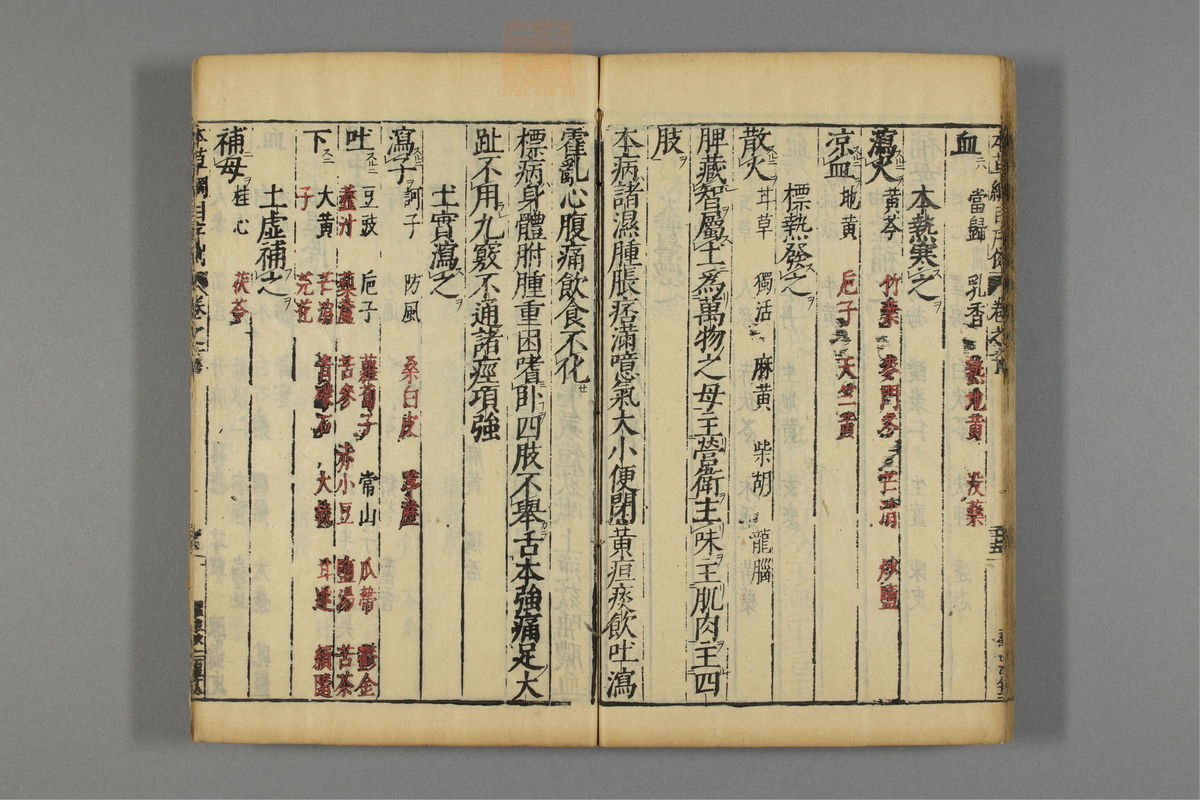 血 當歸 乳香 熟地黃 沒藥
本熱寒之
瀉火 黃芩 竹葉 麥門冬 芒消 炒鹽
涼血 地黃 巵子 天竺黃
標熱發之
散火 甘草 獨活 麻黃 柴胡 龍腦
脾藏智屬土為萬物之母主營衛主味主肌肉主四
肢
本病諸濕腫脹痞滿噫氣大小便閉黃疸痰飲吐瀉
霍亂心腹痛飲食不化
標病身體胕腫重困嗜卧四肢不舉舌本強痛足大
趾不用九竅不通諸痙項強
土實瀉之
瀉子 訶子 防風 桑白皮 葶藶
吐 豆豉 巵子 蘿蔔子 常山 瓜蒂 鬱金
虀汁 藜蘆 苦參 赤小豆 鹽湯 苦茶
下 大黃 芒消 青礞石 大戟 甘遂 續隨
子 芫花
土虛補之
補母 桂心 茯苓